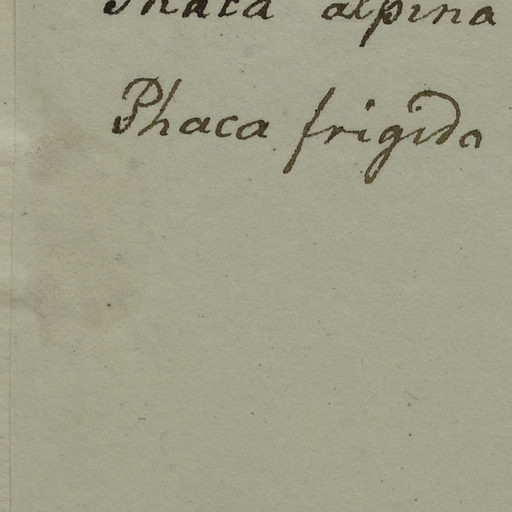 Phaca alpina
Phaca frigida